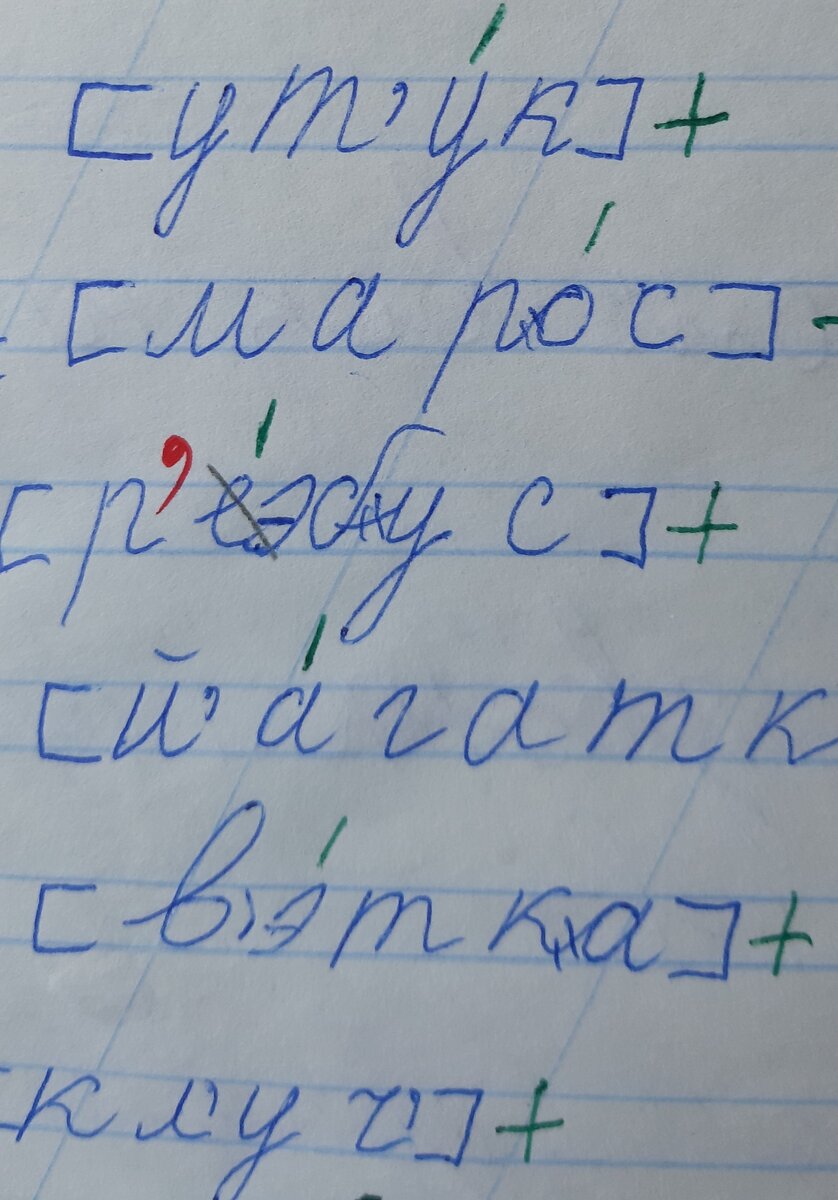 [ут'у́к]+
[маро́с]
[р'э́бус]+
[й'а́гатк
[в'э́тка]+
кл'уч']+